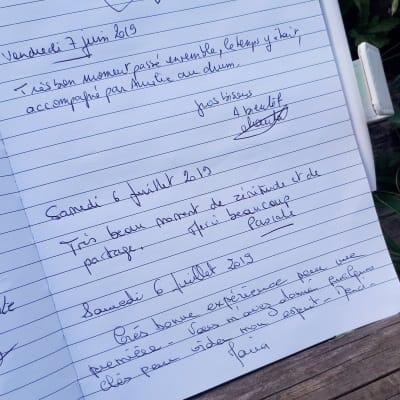 Vendredi 7 juin 2019
Très bon moment passé ensemble, le temps y était,
accompagné par Aurélie au drum.
gros bisous
A bientôt
Samedi 6 juillet 2019
Très beau moment de zinitude et de
partage. Merci beaucoup
Pascale
Samedi 6 juillet 2019
Très bonne expérience pour une
première. Vous m'avez donné quelques
clés pour vider mon esprit.